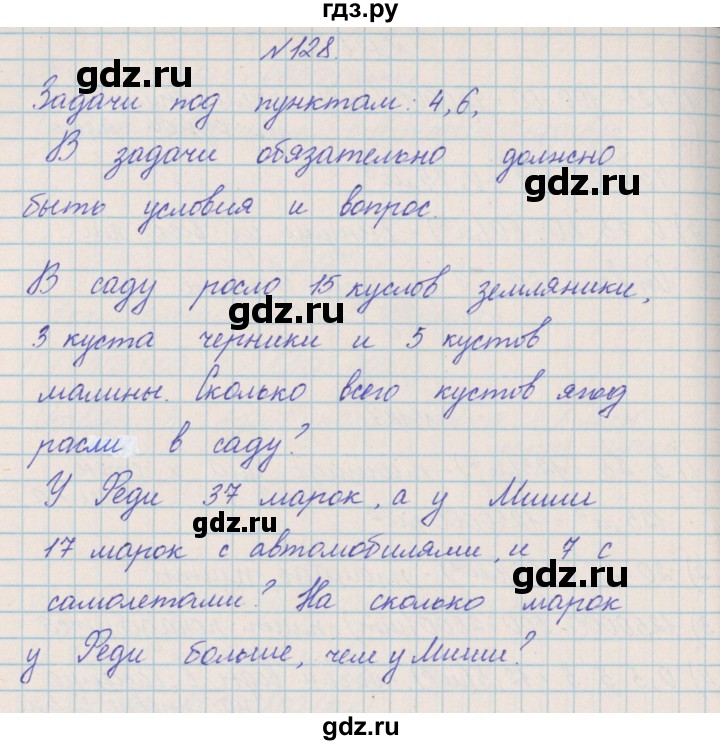 гдз.ру
№128.
gdz.ru
Задачи под пунктам: 4, 6,
В задачи обязательно должно
gdz.ru
быть условия и вопрос.
В саду росло 15 куслов земляники,
gdz.ru
3 куста черники и 5 кустов
малины. Сколько всего кустов ягод
расли в саду?
У Феди 37 марок, а у Миши
gdz.ru
17 марок с автомобилями, и 7 с
gdz.ru
самолетами? На сколько марок
у Феди больше, чем у Миши?
gdz.ru